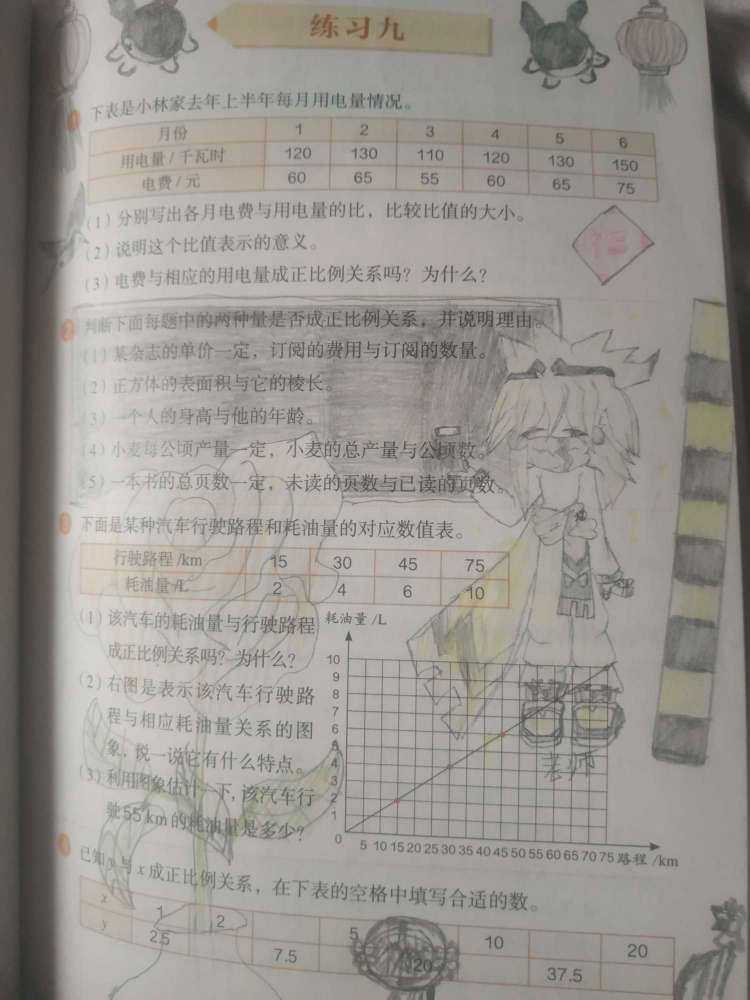 练习九
1 下表是小林家去年上半年每月用电量情况。
月份 1 2 3 4 5 6
用电量/千瓦时 120 130 110 120 130 150
电费/元 60 65 55 60 65 75
(1)分别写出各月电费与用电量的比，比较比值的大小。
(2)说明这个比值表示的意义。
福
(3)电费与相应的用电量成正比例关系吗？为什么？
2 判断下面每题中的两种量是否成正比例关系，并说明理由。
(1)某杂志的单价一定，订阅的费用与订阅的数量。
(2)正方体的表面积与它的棱长。
(3)一个人的身高与他的年龄。
(4)小麦每公顷产量一定，小麦的总产量与公顷数。
(5)一本书的总页数一定，未读的页数与已读的页数。
3 下面是某种汽车行驶路程和耗油量的对应数值表。
行驶路程/km 15 30 45 75
耗油量/L 2 4 6 10
(1)该汽车的耗油量与行驶路程
成正比例关系吗？为什么？
(2)右图是表示该汽车行驶路
程与相应耗油量关系的图
象，说一说它有什么特点。
(3)利用图象估计一下，该汽车行
驶55 km的耗油量是多少？
耗油量/L
10
9
8
7
6
5
4
3
2
1
0
5 10 15 20 25 30 35 40 45 50 55 60 65 70 75 路程/km
老师
4 已知y与x成正比例关系，在下表的空格中填写合适的数。
x 1 2 5 10 20
y 2.5 7.5 20 37.5